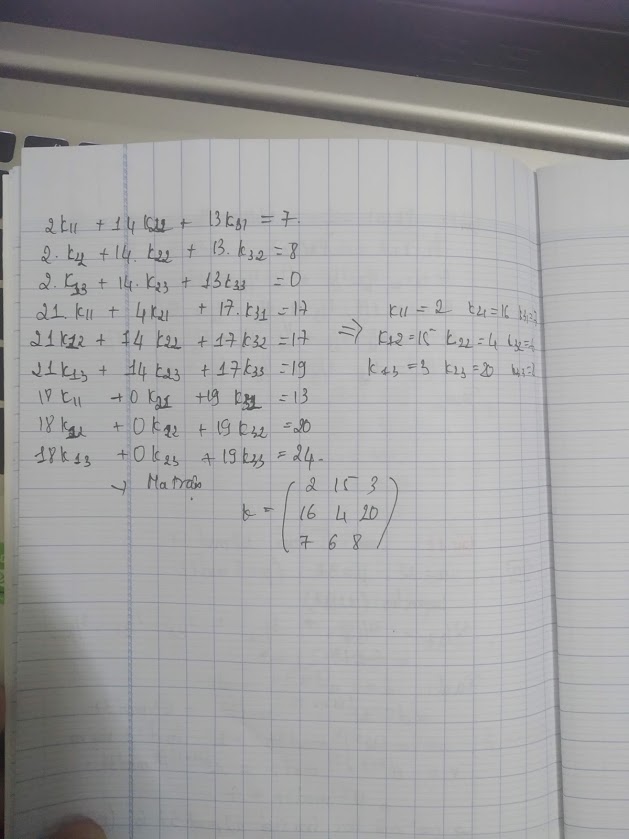 2k11 + 14k22 + 13k31 = 7.
2. k12 + 14. k22 + 13. k32 = 8
2. k13 + 14. k23 + 13k33 = 0
21. k11 + 4k21 + 17. k31 = 17
21k12 + 14 k22 + 17k32 = 17
21k13 + 14k23 + 17k33 = 19
18k11 + 0k21 + 19 k31 = 13
18k12 + 0k22 + 19k32 = 20
18k13 + 0k23 + 19k33 = 24.
=> k11 = 2 k21 = 16
k12 = 15 k22 = 4
k13 = 3 k23 = 20
→
k = ( 2 15 3
16 4 20
7 6 8 )